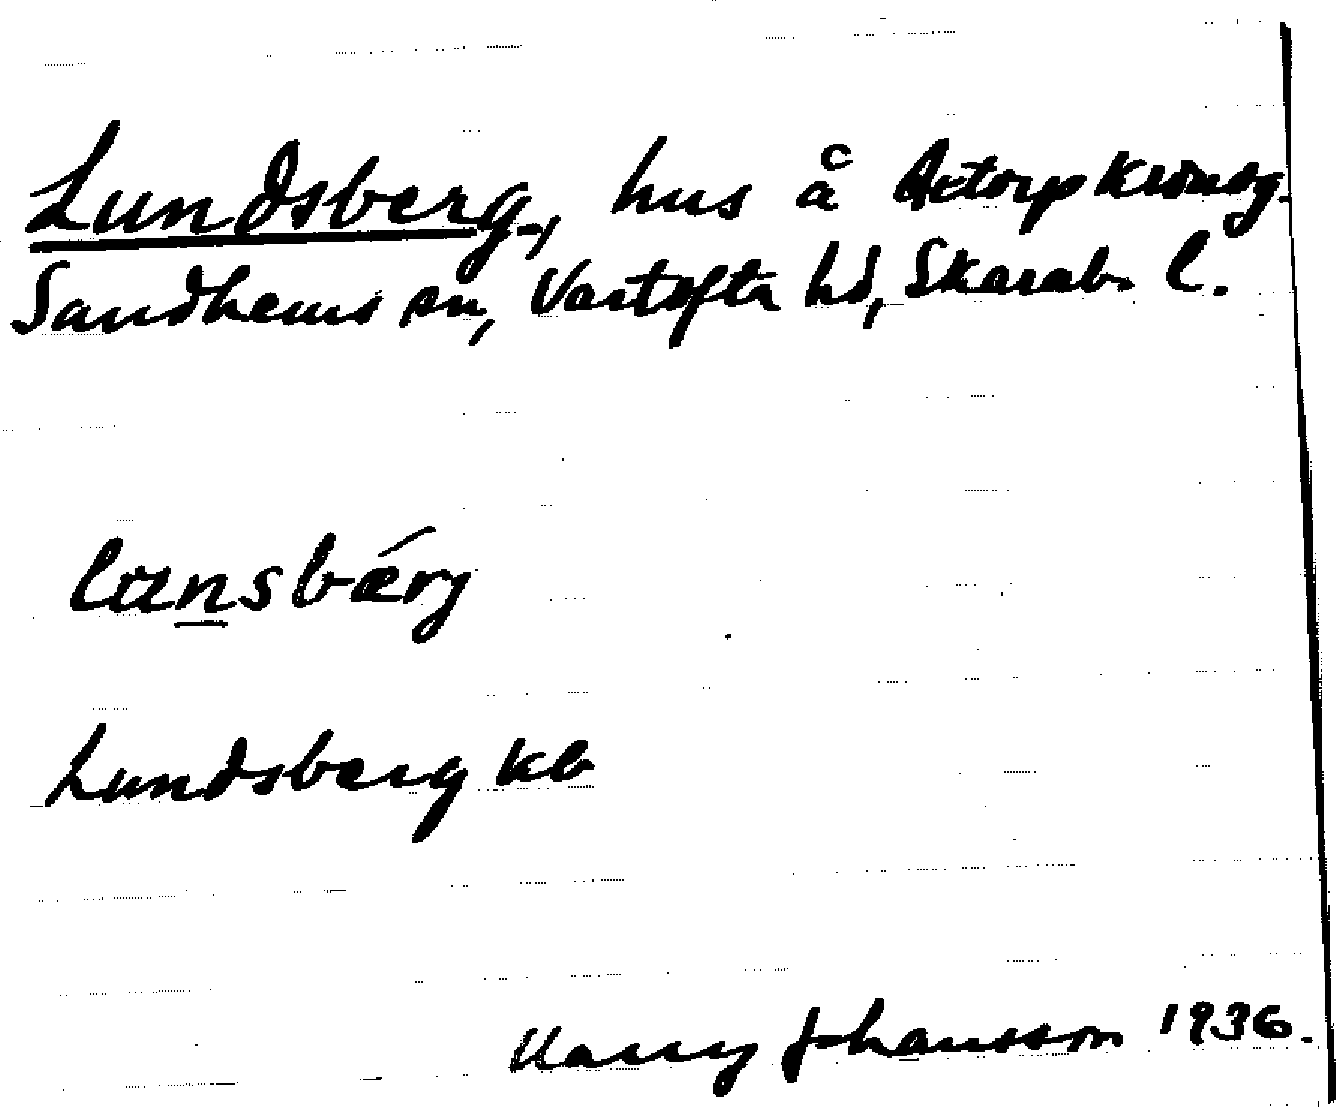 Lundsberg, hus å Aetorp Kronog.
Sandhems sn, Vartofta hd, Skarab. l.
lunsbærg
Lundsberg kb
Harry Johansson 1936.